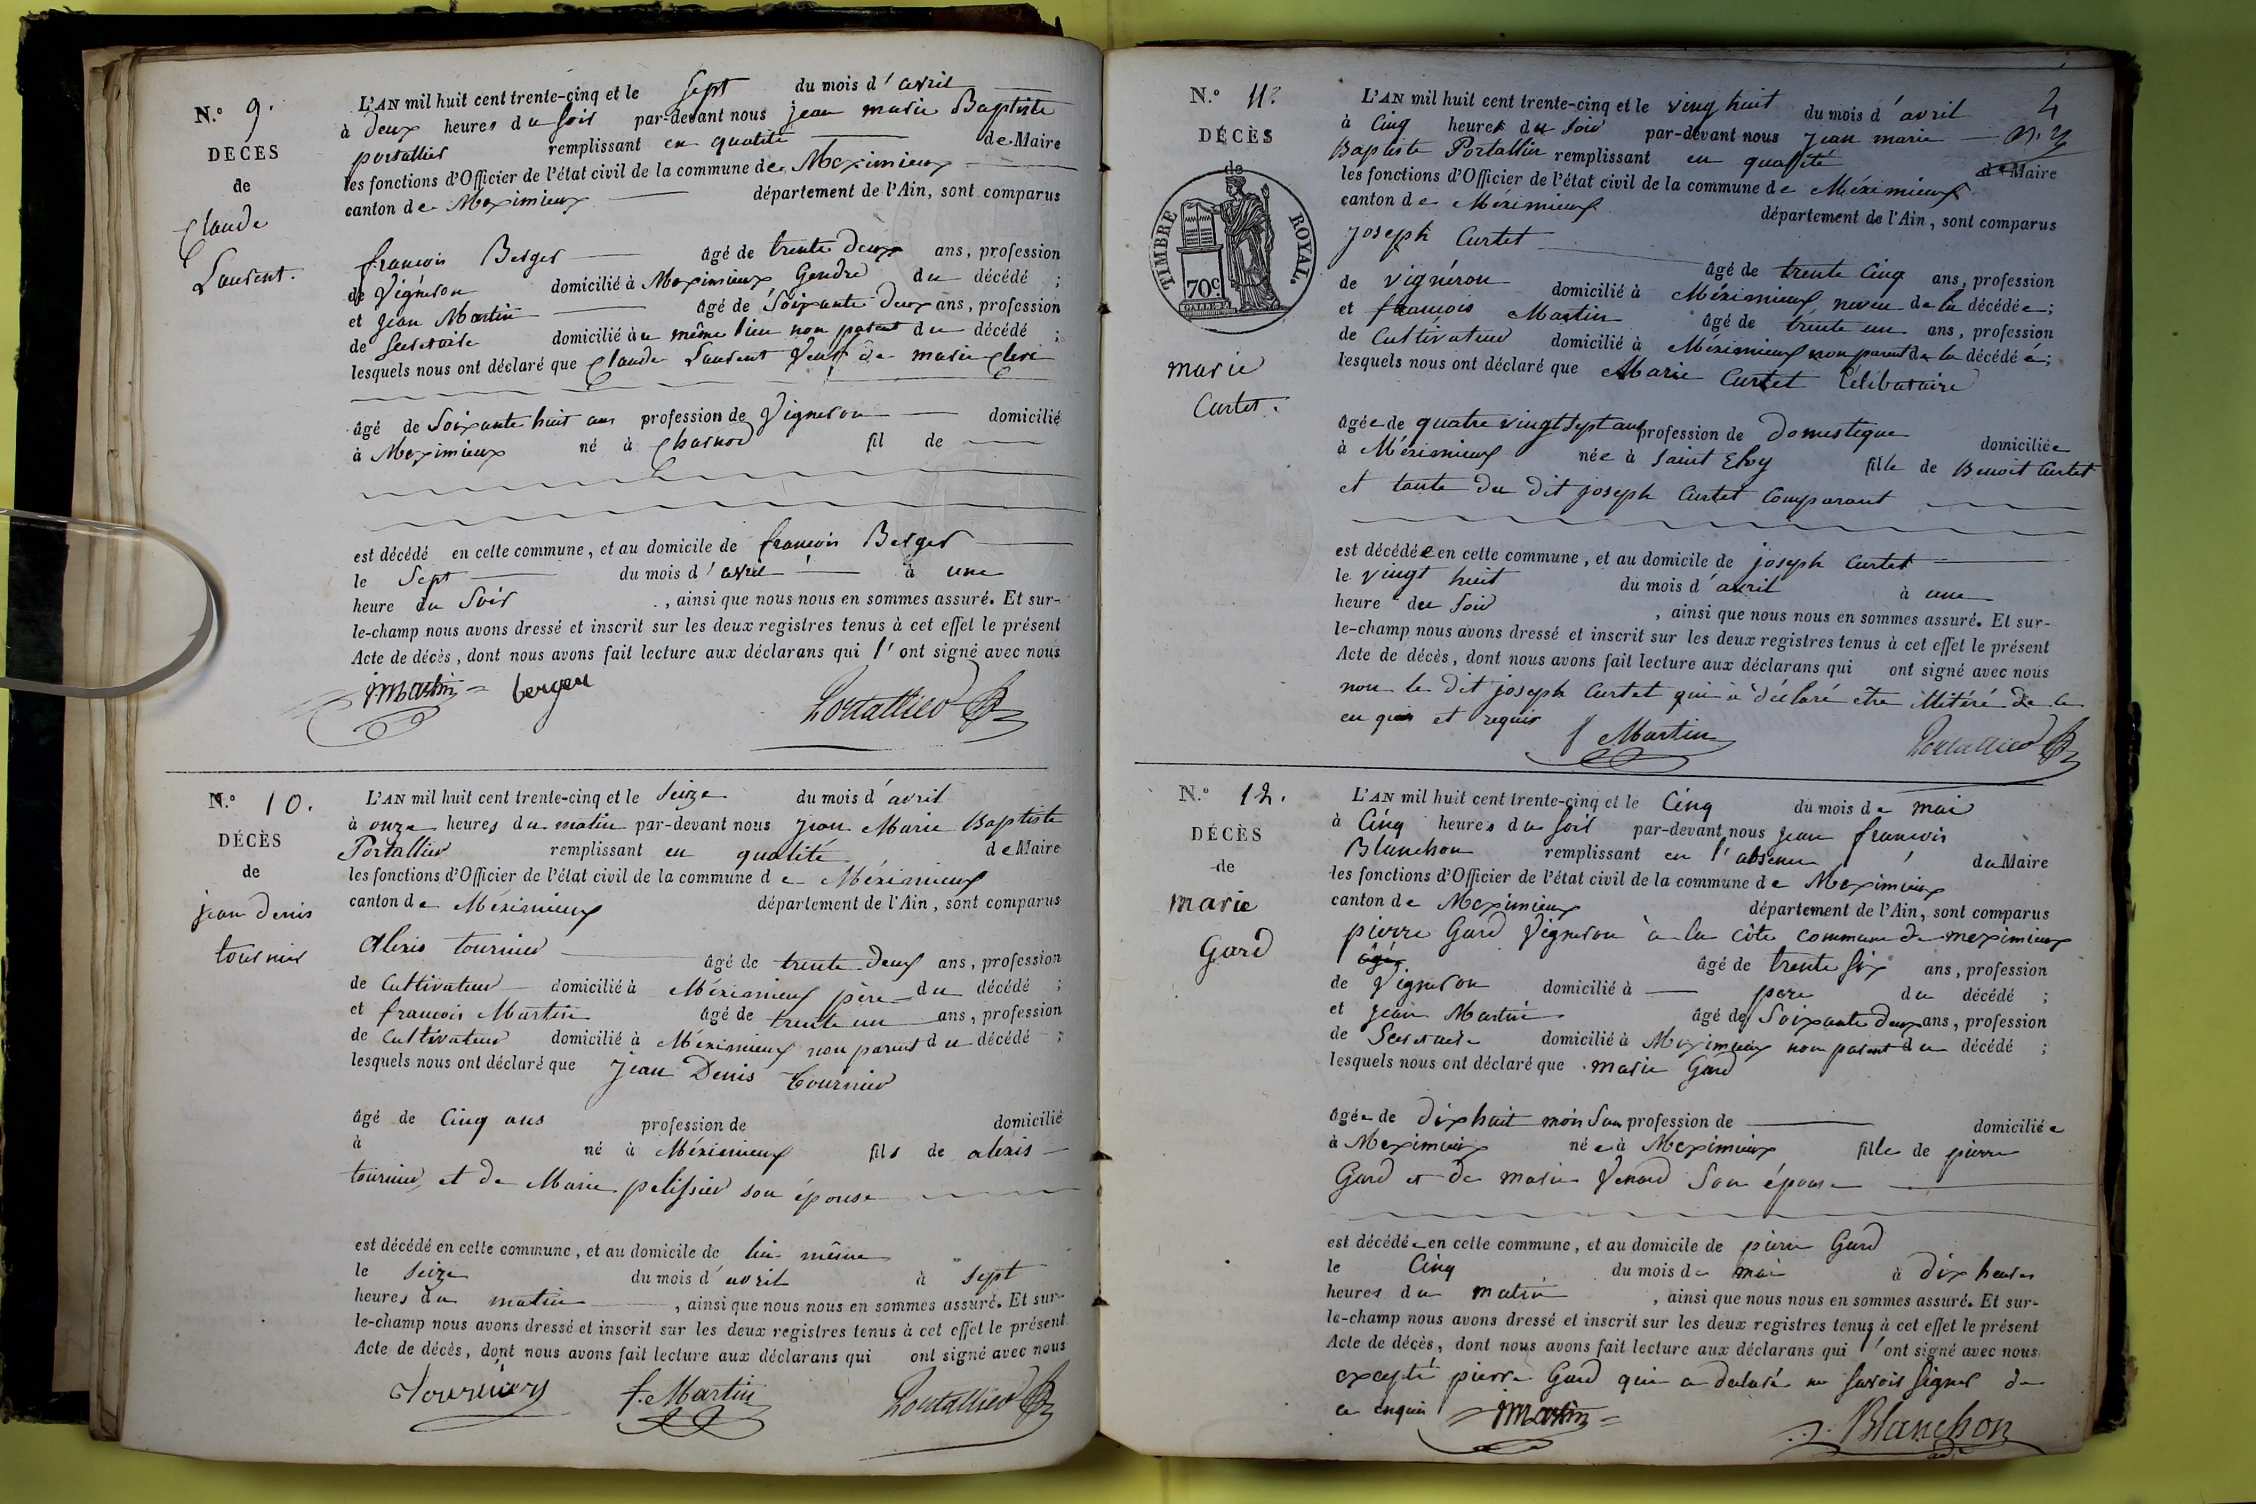 N.° 9.
DECES
de
Claude
Laurent.
L'AN mil huit cent trente-cinq et le sept du mois d'avril
à deux heures du soir par-devant nous jean marie Baptiste
portallier remplissant en qualité de Maire
les fonctions d'Officier de l'état civil de la commune de Meximieux
canton de Meximieux département de l'Ain, sont comparus
françois Berger âgé de trente deux ans, profession
de Vigneron domicilié à Meximieux Gendre du décédé ;
et jean Martin âgé de Soixante Deux ans, profession
de Secretaire domicilié au même lieu non parent du décédé ;
lesquels nous ont déclaré que Claude Laurent Veuf de marie
âgé de Soixante huit ans profession de Vigneron domicilié
à Meximieux né à Charnod fil de
est décédé en cette commune, et au domicile de françois Berger
le Sept du mois d'avril à une
heure du Soir , ainsi que nous nous en sommes assuré. Et sur-
le-champ nous avons dressé et inscrit sur les deux registres tenus à cet effet le présent
Acte de décès, dont nous avons fait lecture aux déclarans qui l'ont signé avec nous
jmartin berger Portallier
N.° 10.
DÉCÈS
de
jean denis
tournier
L'AN mil huit cent trente-cinq et le seize du mois d'avril
à onze heures du matin par-devant nous jean Marie Baptiste
Portallier remplissant en qualité de Maire
les fonctions d'Officier de l'état civil de la commune de Méximieux
canton de Méximieux département de l'Ain, sont comparus
Alexis tournier âgé de trente Deux ans, profession
de Cultivateur domicilié à Méximieux père du décédé ;
et françois Martin âgé de trente un ans, profession
de Cultivateur domicilié à Méximieux non parent du décédé ;
lesquels nous ont déclaré que jean Denis Tournier
âgé de Cinq ans profession de domicilié
à né à Méximieux fils de alexis
tournier et de Marie pelissier son épouse
est décédé en cette commune, et au domicile de lui même
le seize du mois d'avril à sept
heures du matin , ainsi que nous nous en sommes assuré. Et sur-
le-champ nous avons dressé et inscrit sur les deux registres tenus à cet effet le présent
Acte de décès, dont nous avons fait lecture aux déclarans qui ont signé avec nous
f. Martin Portallier
N.° 11.
DÉCÈS
de
TIMBRE ROYAL.
70c.
marie
Curtet.
L'AN mil huit cent trente-cinq et le vingt huit du mois d'avril
à Cinq heures du soir par-devant nous jean marie
Baptiste Portallier remplissant en qualité de Maire
les fonctions d'Officier de l'état civil de la commune de Méximieux
canton de Méximieux département de l'Ain, sont comparus
joseph Curtet
âgé de trente Cinq ans, profession
de vignéron domicilié à Méximieux neveu de la décédée ;
et françois Martin âgé de trente un ans, profession
de Cultivateur domicilié à Méximieux non parent de la décédée ;
lesquels nous ont déclaré que Marie Curtet Célibataire
âgée de quatre vingt Sept ans profession de Domestique domiciliée
à Méximieux née à Saint Eloy fille de Benoit Curtet
et tante du dit joseph Curtet Comparant
est décédée en cette commune, et au domicile de joseph Curtet
le vingt huit du mois d'avril à une
heure du Soir , ainsi que nous nous en sommes assuré. Et sur-
le-champ nous avons dressé et inscrit sur les deux registres tenus à cet effet le présent
Acte de décès, dont nous avons fait lecture aux déclarans qui ont signé avec nous
non le Dit joseph Curtet qui a déclaré être illitéré de ce
enquis et requis
f Martin Portallier
N.° 12.
DÉCÈS
de
marie
Gard
L'AN mil huit cent trente-cinq et le Cinq du mois de mai
à Cinq heures du soir par-devant nous jean françois
Blanchon remplissant en l'absence du Maire
les fonctions d'Officier de l'état civil de la commune de Meximieux
canton de Meximieux département de l'Ain, sont comparus
pierre Gard Vigneron à la côte commune de meximieux
âgé de trente Six ans, profession
de Vigneron domicilié à pere du décédé ;
et jean Martin âgé de Soixante Deux ans, profession
de Secretaire domicilié à Meximieux non parent du décédé ;
lesquels nous ont déclaré que marie Gard
âgée de dix huit mois San profession de domiciliée
à Meximieux née à Meximieux fille de pierre
Gard et de marie Venard Son épouse
est décédée en cette commune, et au domicile de pierre Gard
le Cinq du mois de mai à dix heures
heures du matin , ainsi que nous nous en sommes assuré. Et sur-
le-champ nous avons dressé et inscrit sur les deux registres tenus à cet effet le présent
Acte de décès, dont nous avons fait lecture aux déclarans qui l'ont signé avec nous
excepté pierre Gard qui a declaré ne savoir signer de
ce enquis jmartin Blanchon
adj